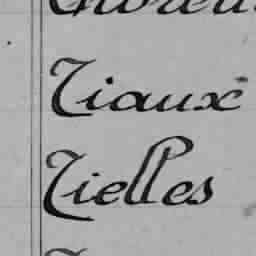 Tiaux
Tielles